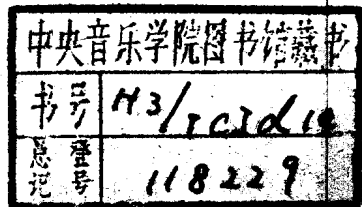 中央音乐学院图书馆藏书
书号 H3/
总登记号 118229